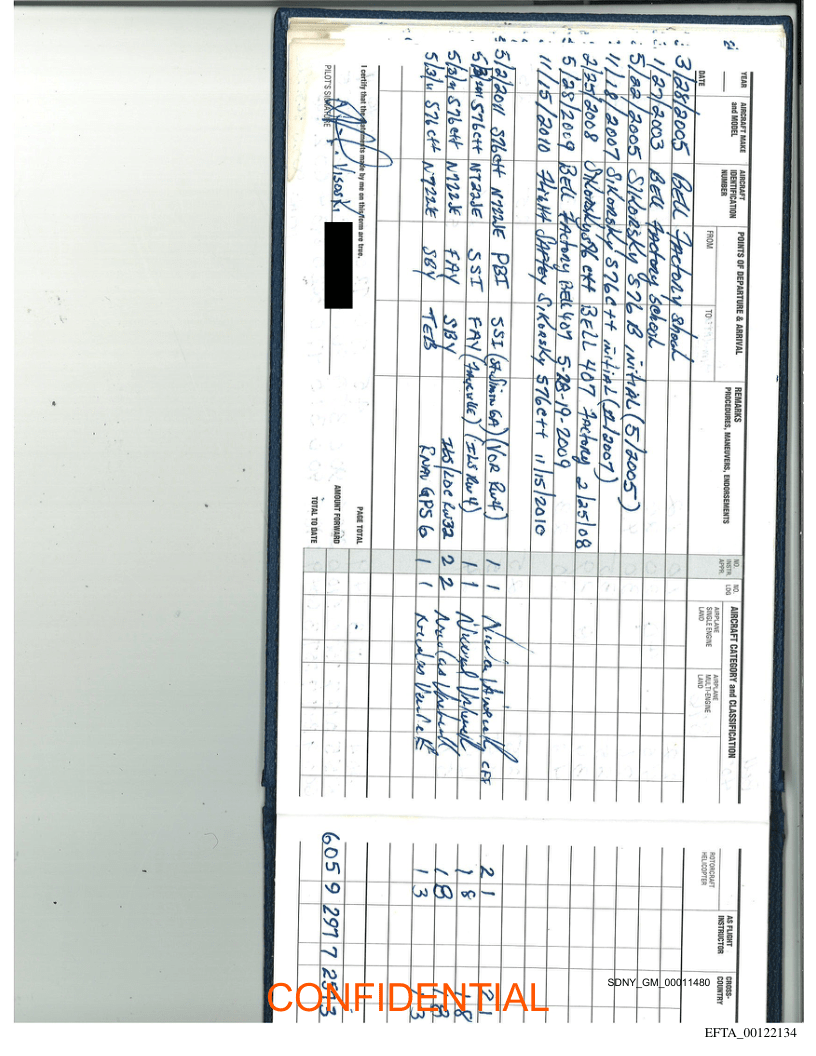 YEAR
DATE
AIRCRAFT MAKE and MODEL
AIRCRAFT IDENTIFICATION NUMBER
POINTS OF DEPARTURE & ARRIVAL
FROM
TO
REMARKS
PROCEDURES, MANEUVERS, ENDORSEMENTS
NO. INSTR. APPR.
NO. LDG
AIRCRAFT CATEGORY and CLASSIFICATION
AIRPLANE SINGLE ENGINE LAND
AIRPLANE MULTI-ENGINE LAND
ROTORCRAFT HELICOPTER
AS FLIGHT INSTRUCTOR
CROSS-COUNTRY
3/28/2005 Bell Factory School
1/27/2003 Bell Factory School
5/22/2005 SIKORZKY S76 B initial (5/2005)
11/18/2007 Sikorsky S76C++ initial
2/25/2008 S76C++ BELL 407 Factory 2/25/08
5/28/2009 BELL Factory Bell 407 5-28-19-2009
11/15/2010 Flight Saftey Sikorsky S76C++ 11/15/2010
5/2/2011 S76C++ N722JE PBI SSI (VOR Rw4) 1 1 CFI 2 1 2 1
S76C++ N722JE SSI FAY (ILS Rw4) 1 1 1 8 1 8
5/3/11 S76C++ N722JE FAY SBY ILS/LOC Rw32 2 2 1 8 1 8
5/3/11 S76C++ N722JE SBY TEB RNAV GPS 6 1 1 1 3 1 3
I certify that the statements made by me on this form are true.
PILOT'S SIGNATURE
Visoski
PAGE TOTAL
AMOUNT FORWARD 6059 2977
TOTAL TO DATE
SDNY_GM_00011480
CONFIDENTIAL
EFTA_00122134